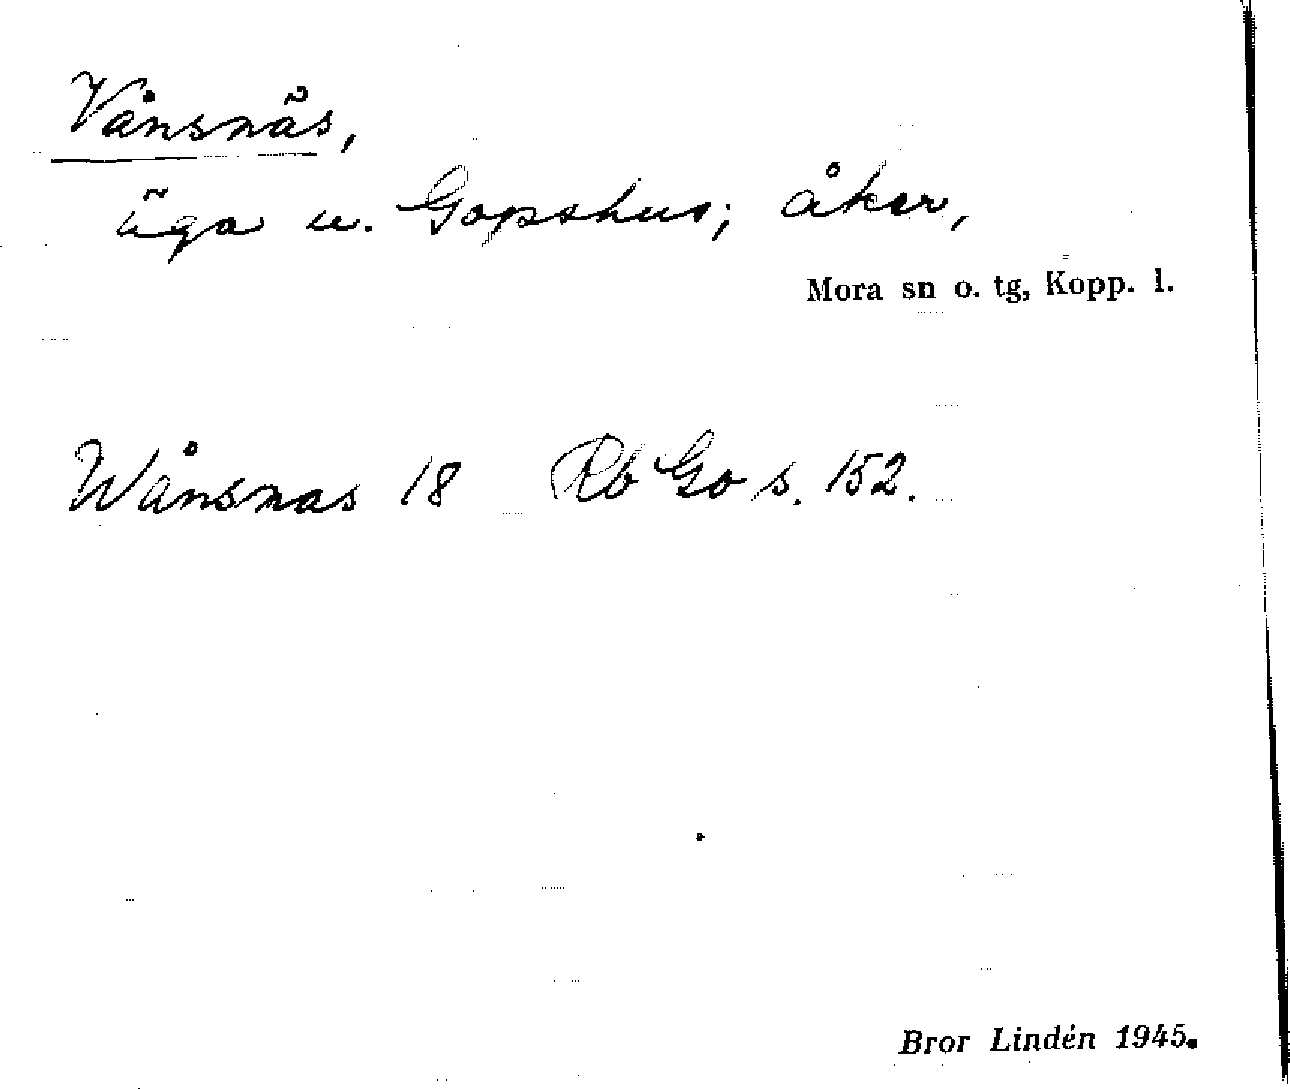 Vånsnäs,
äga u. Gopshus; åker,
Mora sn o. tg, Kopp. l.
Wånsnas 18 Rb Go s. 152.
Bror Lindén 1945.